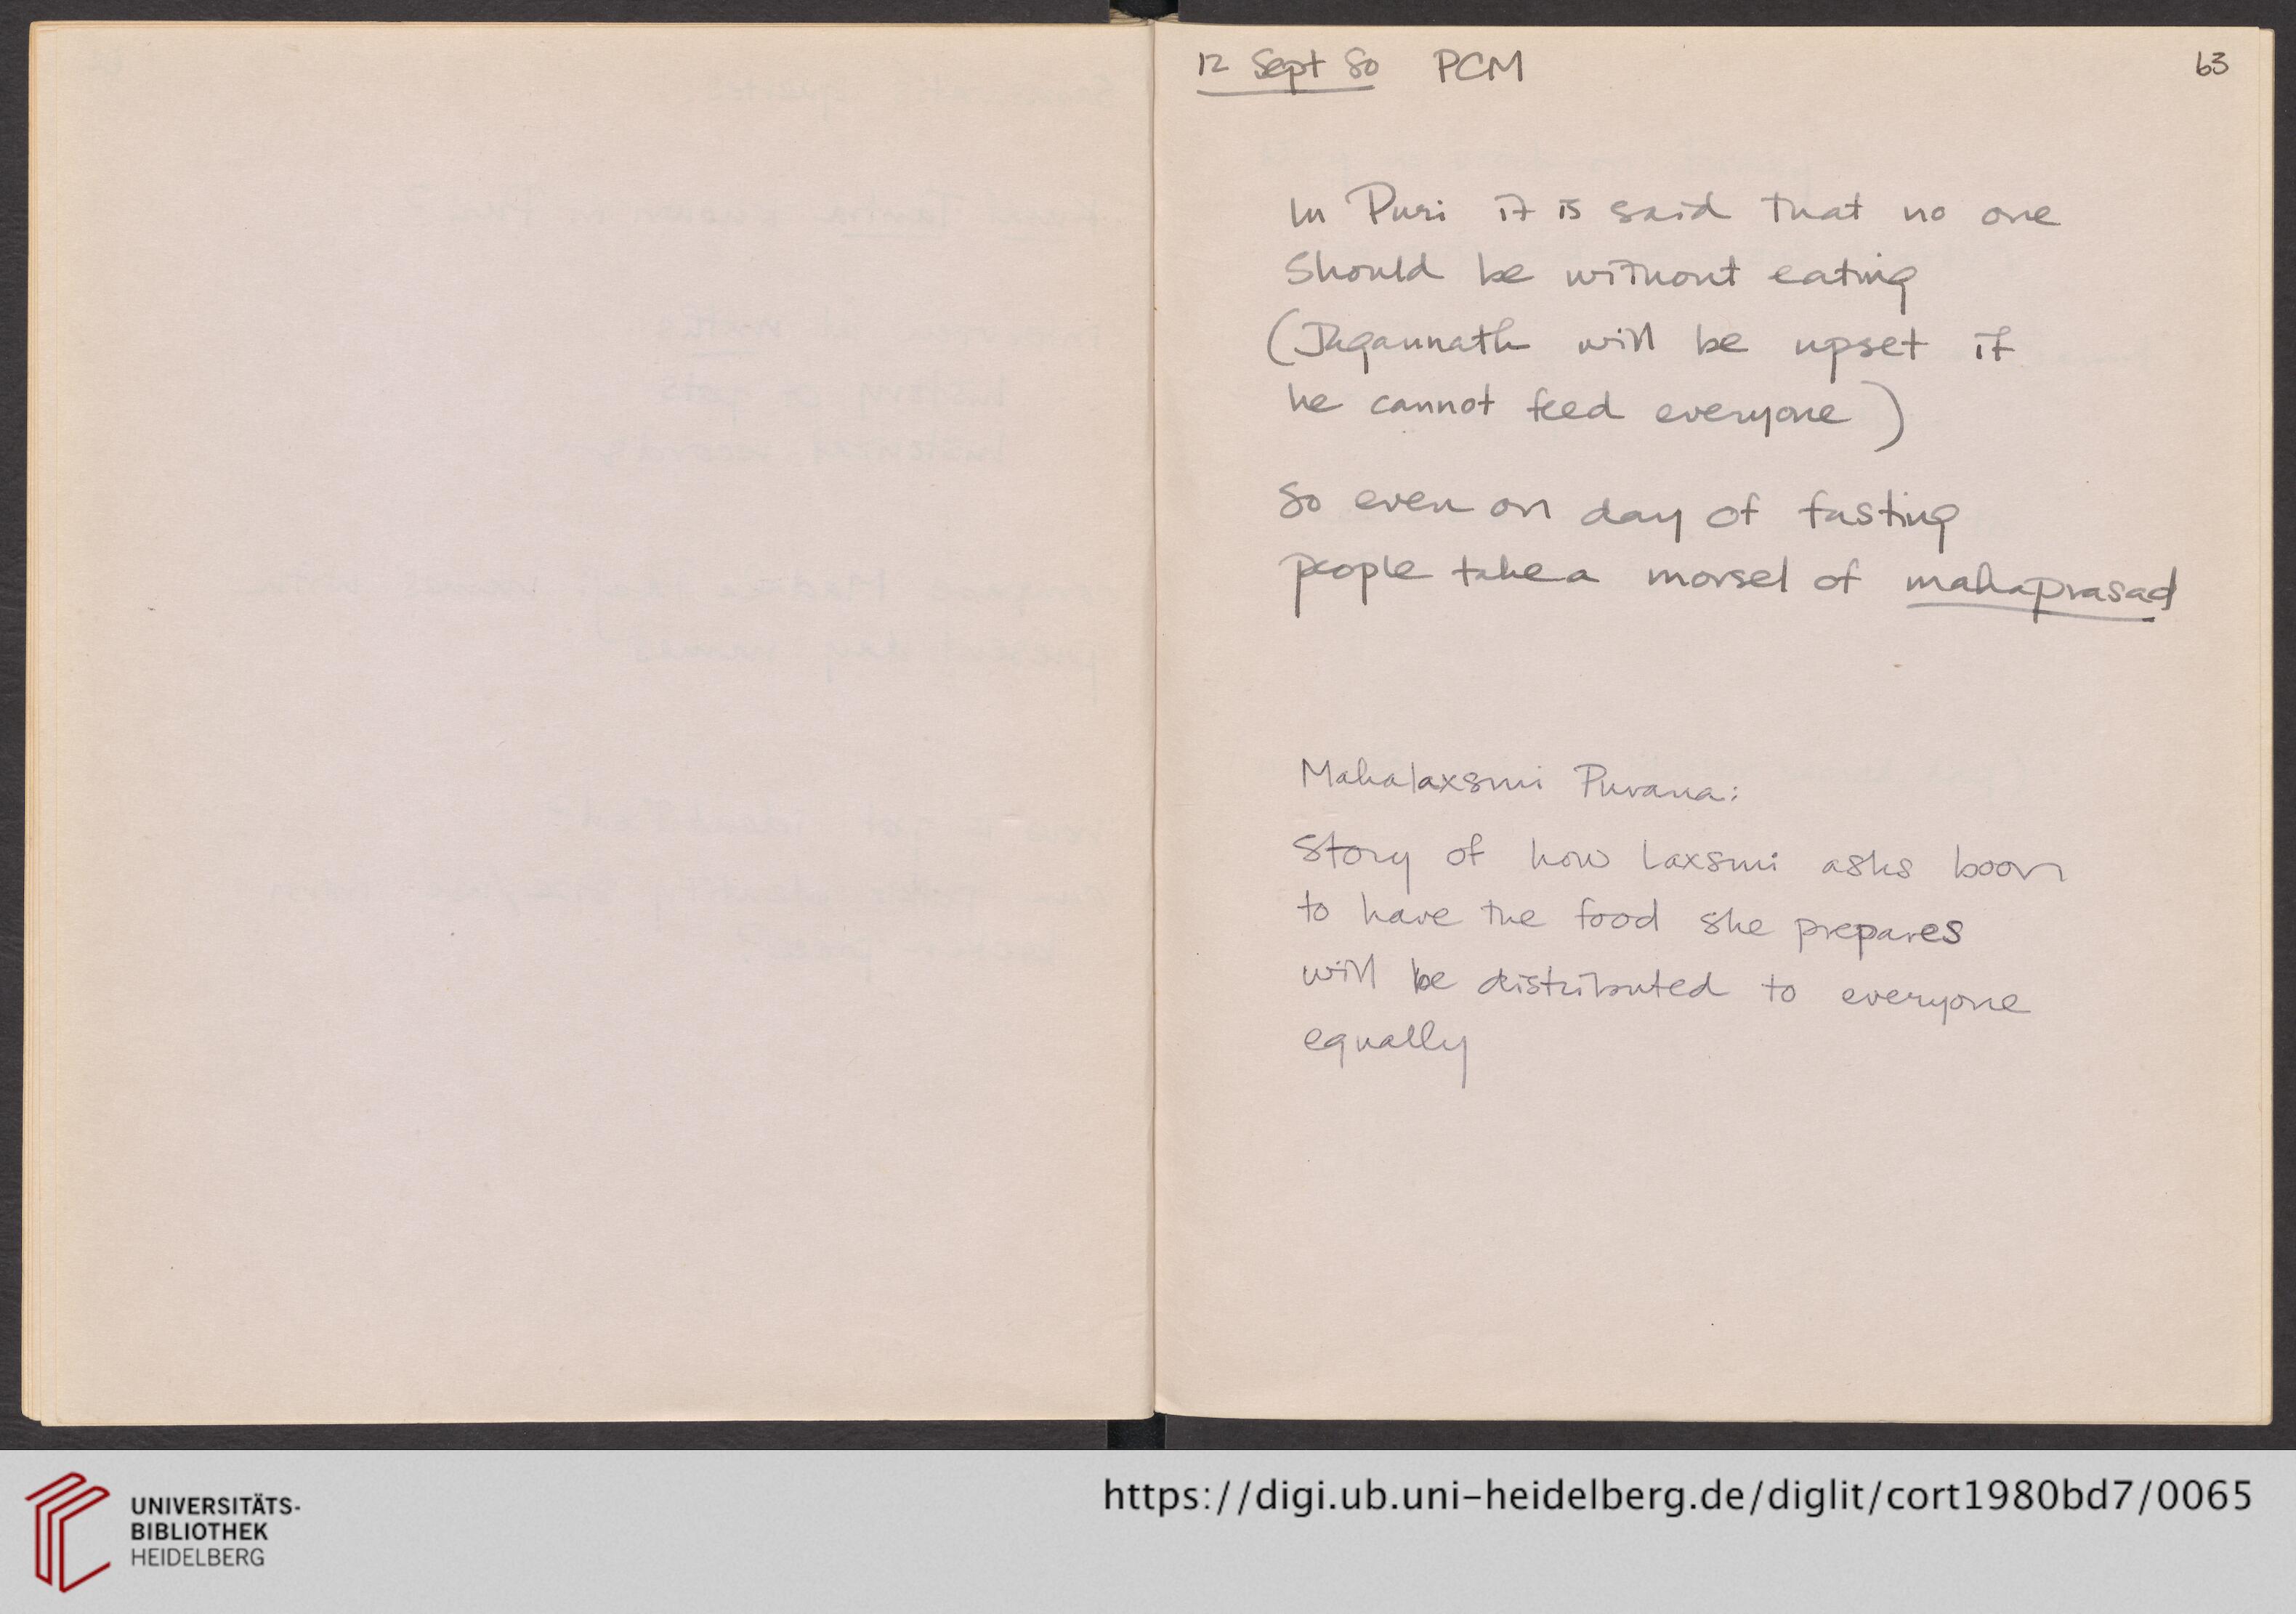 12 Sept 80 PCM 63
In Puri it is said that no one
should be without eating
(Jagannath will be upset if
he cannot feed everyone)
So even on day of fasting
people take a morsel of mahaprasad
Mahalaxsmi Purana:
Story of how Laxsmi asks boon
to have the food she prepares
will be distributed to everyone
equally
UNIVERSITÄTS-
BIBLIOTHEK
HEIDELBERG
https://digi.ub.uni-heidelberg.de/diglit/cort1980bd7/0065